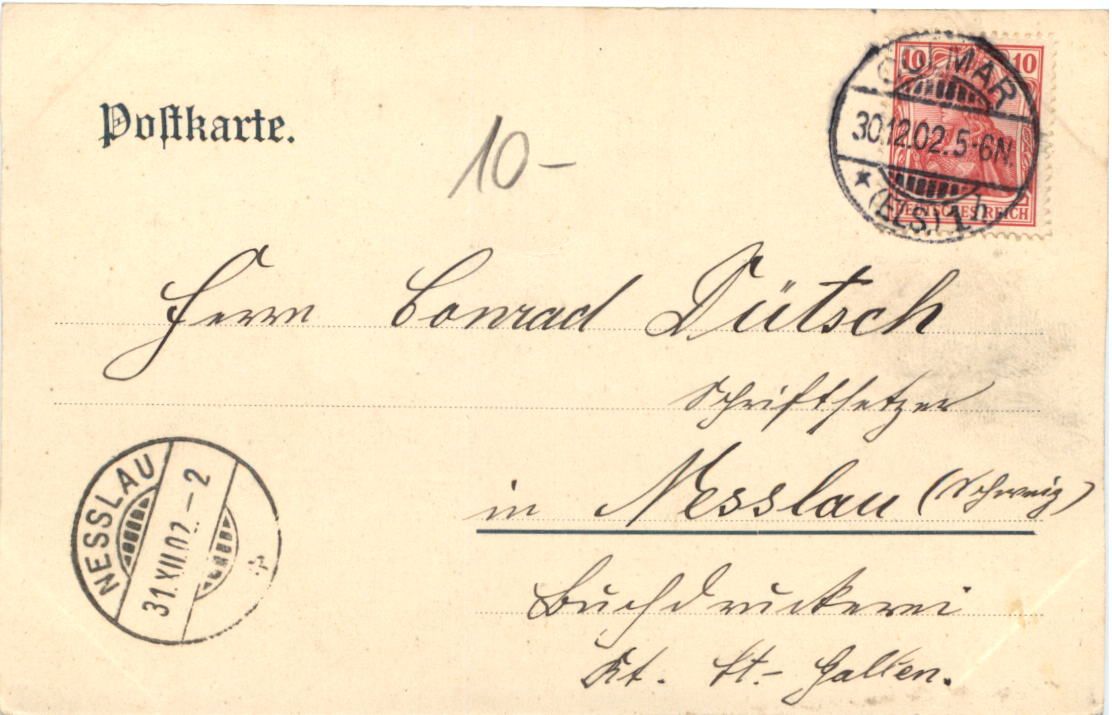 Postkarte.
10-
10 10
COLMAR
30.12.02.5-6N.
* (ELS.) 1 h
DEUTSCHES REICH
Herrn Conrad Dütsch
Schriftsetzer
in Nesslau (Schweiz)
Buchdruckerei
Kt. St. Gallen.
NESSLAU
31.XII.02.-2